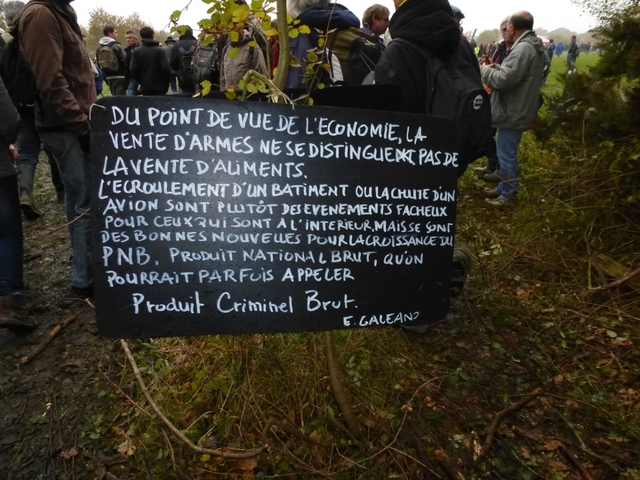 DU POINT DE VUE DE L'ECONOMIE, LA
VENTE D'ARMES NE SE DISTINGUE PAS DE
LA VENTE D'ALIMENTS.
L'ECROULEMENT D'UN BATIMENT OU LA CHUTE D'UN
AVION SONT PLUTÔT DES EVENEMENTS FACHEUX
POUR CEUX QUI SONT À L'INTERIEUR, MAIS SE SONT
DES BONNES NOUVELLES POUR LA CROISSANCE DU
PNB. PRODUIT NATIONAL BRUT, QU'ON
POURRAIT PARFOIS APPELER
Produit Criminel Brut.
E. GALEANO